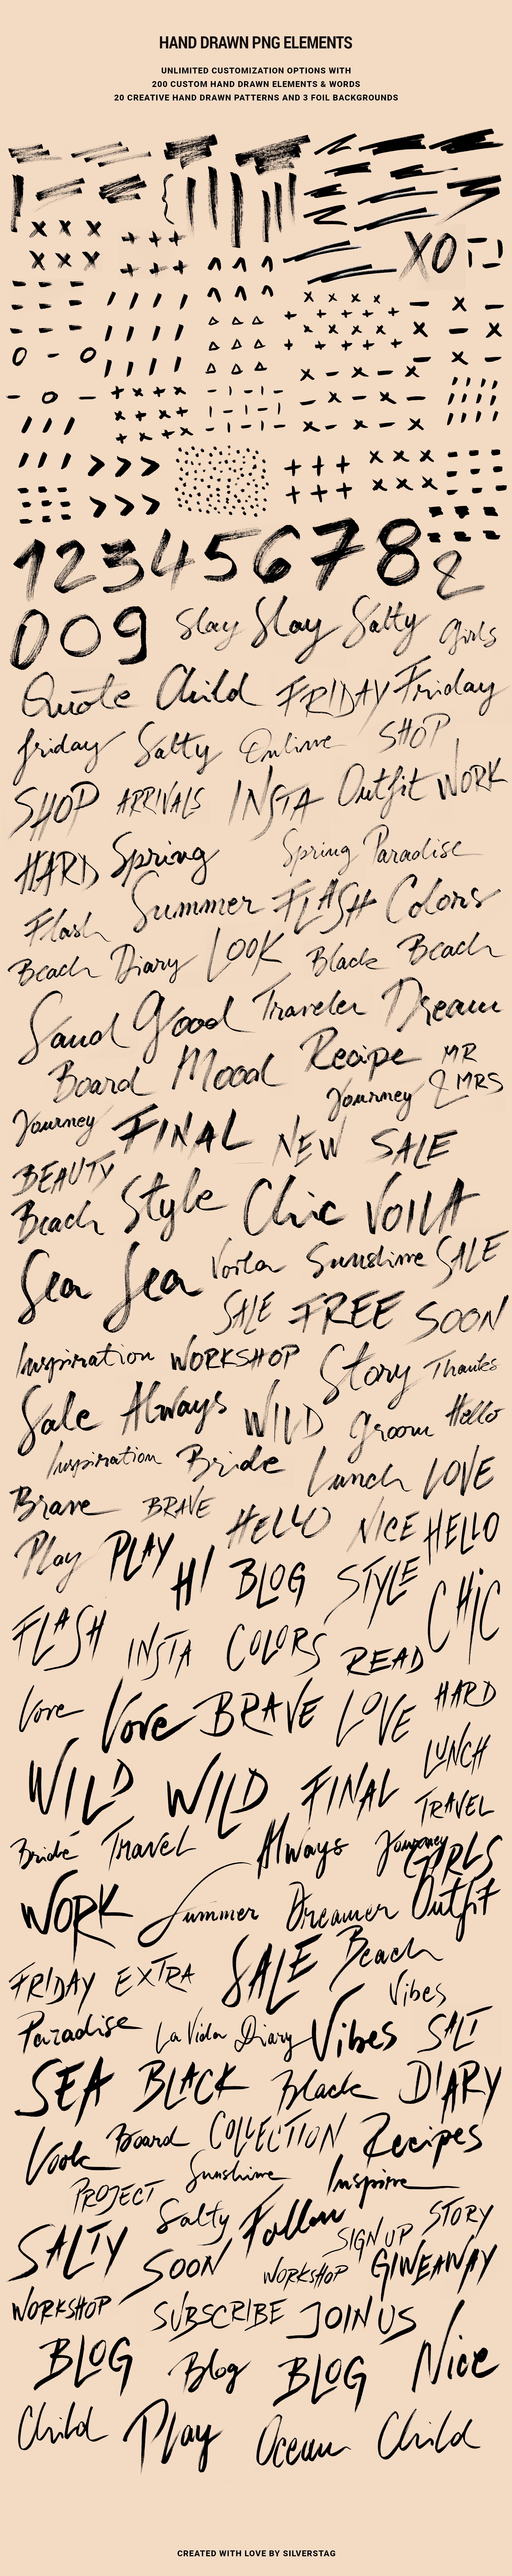 HAND DRAWN PNG ELEMENTS
UNLIMITED CUSTOMIZATION OPTIONS WITH
200 CUSTOM HAND DRAWN ELEMENTS & WORDS
20 CREATIVE HAND DRAWN PATTERNS AND 3 FOIL BACKGROUNDS
XO
1 2 3 4 5 6 7 8 2
0 0 9 Slay Slay Salty Girls
Quote Child FRIDAY Friday
friday Salty Online SHOP
SHOP ARRIVALS INSTA Outfit WORK
HARD Spring Spring Paradise
Flash Summer FLASH Colors
Beach Diary LOOK Black Beach
Sand Good Traveler Dream
Board Mood Recipe MR
Journey & MRS
Journey FINAL NEW SALE
BEAUTY
Beach Style Chic VOILA
Sea Sea Voila Sunshine SALE
SALE FREE SOON
Inspiration WORKSHOP Story Thanks
Sale Always WILD Groom Hello
Inspiration Bride Lunch LOVE
Brave BRAVE HELLO NICE HELLO
Play PLAY HI BLOG STYLE CHIC
FLASH INSTA COLORS READ
Love Love BRAVE LOVE HARD
LUNCH
WILD WILD FINAL TRAVEL
Bride Travel Always Journey GIRLS
WORK Summer Dreamer Outfit
FRIDAY EXTRA SALE Beach
Vibes
Paradise La Vida Diary Vibes SALT
SEA BLACK Black DIARY
Look Board COLLECTION Recipes
PROJECT Sunshine Inspire
SALTY Salty Follow SIGN UP STORY
SOON WORKSHOP GIWEAWAY
WORKSHOP SUBSCRIBE JOIN US
BLOG Blog BLOG Nice
Child Play Ocean Child
CREATED WITH LOVE BY SILVERSTAG